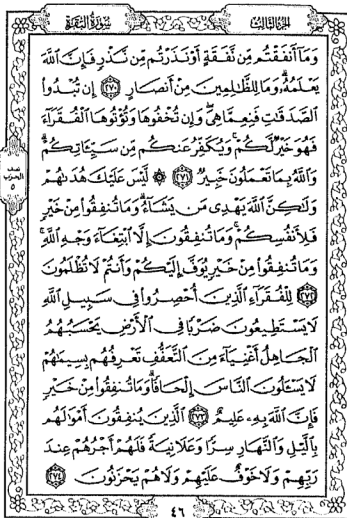 الجزء الثالث
سورة البقرة
وَمَآ أَنفَقۡتُم مِّن نَّفَقَةٍ أَوۡ نَذَرۡتُم مِّن نَّذۡرٖ فَإِنَّ ٱللَّهَ
يَعۡلَمُهُۥۗ وَمَا لِلظَّٰلِمِينَ مِنۡ أَنصَارٍ ٢٧٠ إِن تُبۡدُواْ
ٱلصَّدَقَٰتِ فَنِعِمَّا هِيَۖ وَإِن تُخۡفُوهَا وَتُؤۡتُوهَا ٱلۡفُقَرَآءَ
فَهُوَ خَيۡرٞ لَّكُمۡۚ وَيُكَفِّرُ عَنكُم مِّن سَيِّـَٔاتِكُمۡۗ
وَٱللَّهُ بِمَا تَعۡمَلُونَ خَبِيرٞ ٢٧١ ۞ لَّيۡسَ عَلَيۡكَ هُدَىٰهُمۡ
وَلَٰكِنَّ ٱللَّهَ يَهۡدِي مَن يَشَآءُۗ وَمَا تُنفِقُواْ مِنۡ خَيۡرٖ
فَلِأَنفُسِكُمۡۚ وَمَا تُنفِقُونَ إِلَّا ٱبۡتِغَآءَ وَجۡهِ ٱللَّهِۚ
وَمَا تُنفِقُواْ مِنۡ خَيۡرٖ يُوَفَّ إِلَيۡكُمۡ وَأَنتُمۡ لَا تُظۡلَمُونَ
٢٧٢ لِلۡفُقَرَآءِ ٱلَّذِينَ أُحۡصِرُواْ فِي سَبِيلِ ٱللَّهِ
لَا يَسۡتَطِيعُونَ ضَرۡبٗا فِي ٱلۡأَرۡضِ يَحۡسَبُهُمُ
ٱلۡجَاهِلُ أَغۡنِيَآءَ مِنَ ٱلتَّعَفُّفِ تَعۡرِفُهُم بِسِيمَٰهُمۡ
لَا يَسۡـَٔلُونَ ٱلنَّاسَ إِلۡحَافٗاۗ وَمَا تُنفِقُواْ مِنۡ خَيۡرٖ
فَإِنَّ ٱللَّهَ بِهِۦ عَلِيمٌ ٢٧٣ ٱلَّذِينَ يُنفِقُونَ أَمۡوَٰلَهُم
بِٱلَّيۡلِ وَٱلنَّهَارِ سِرّٗا وَعَلَانِيَةٗ فَلَهُمۡ أَجۡرُهُمۡ عِندَ
رَبِّهِمۡ وَلَا خَوۡفٌ عَلَيۡهِمۡ وَلَا هُمۡ يَحۡزَنُونَ ٢٧٤
نصف
الحزب
٥
٤٦